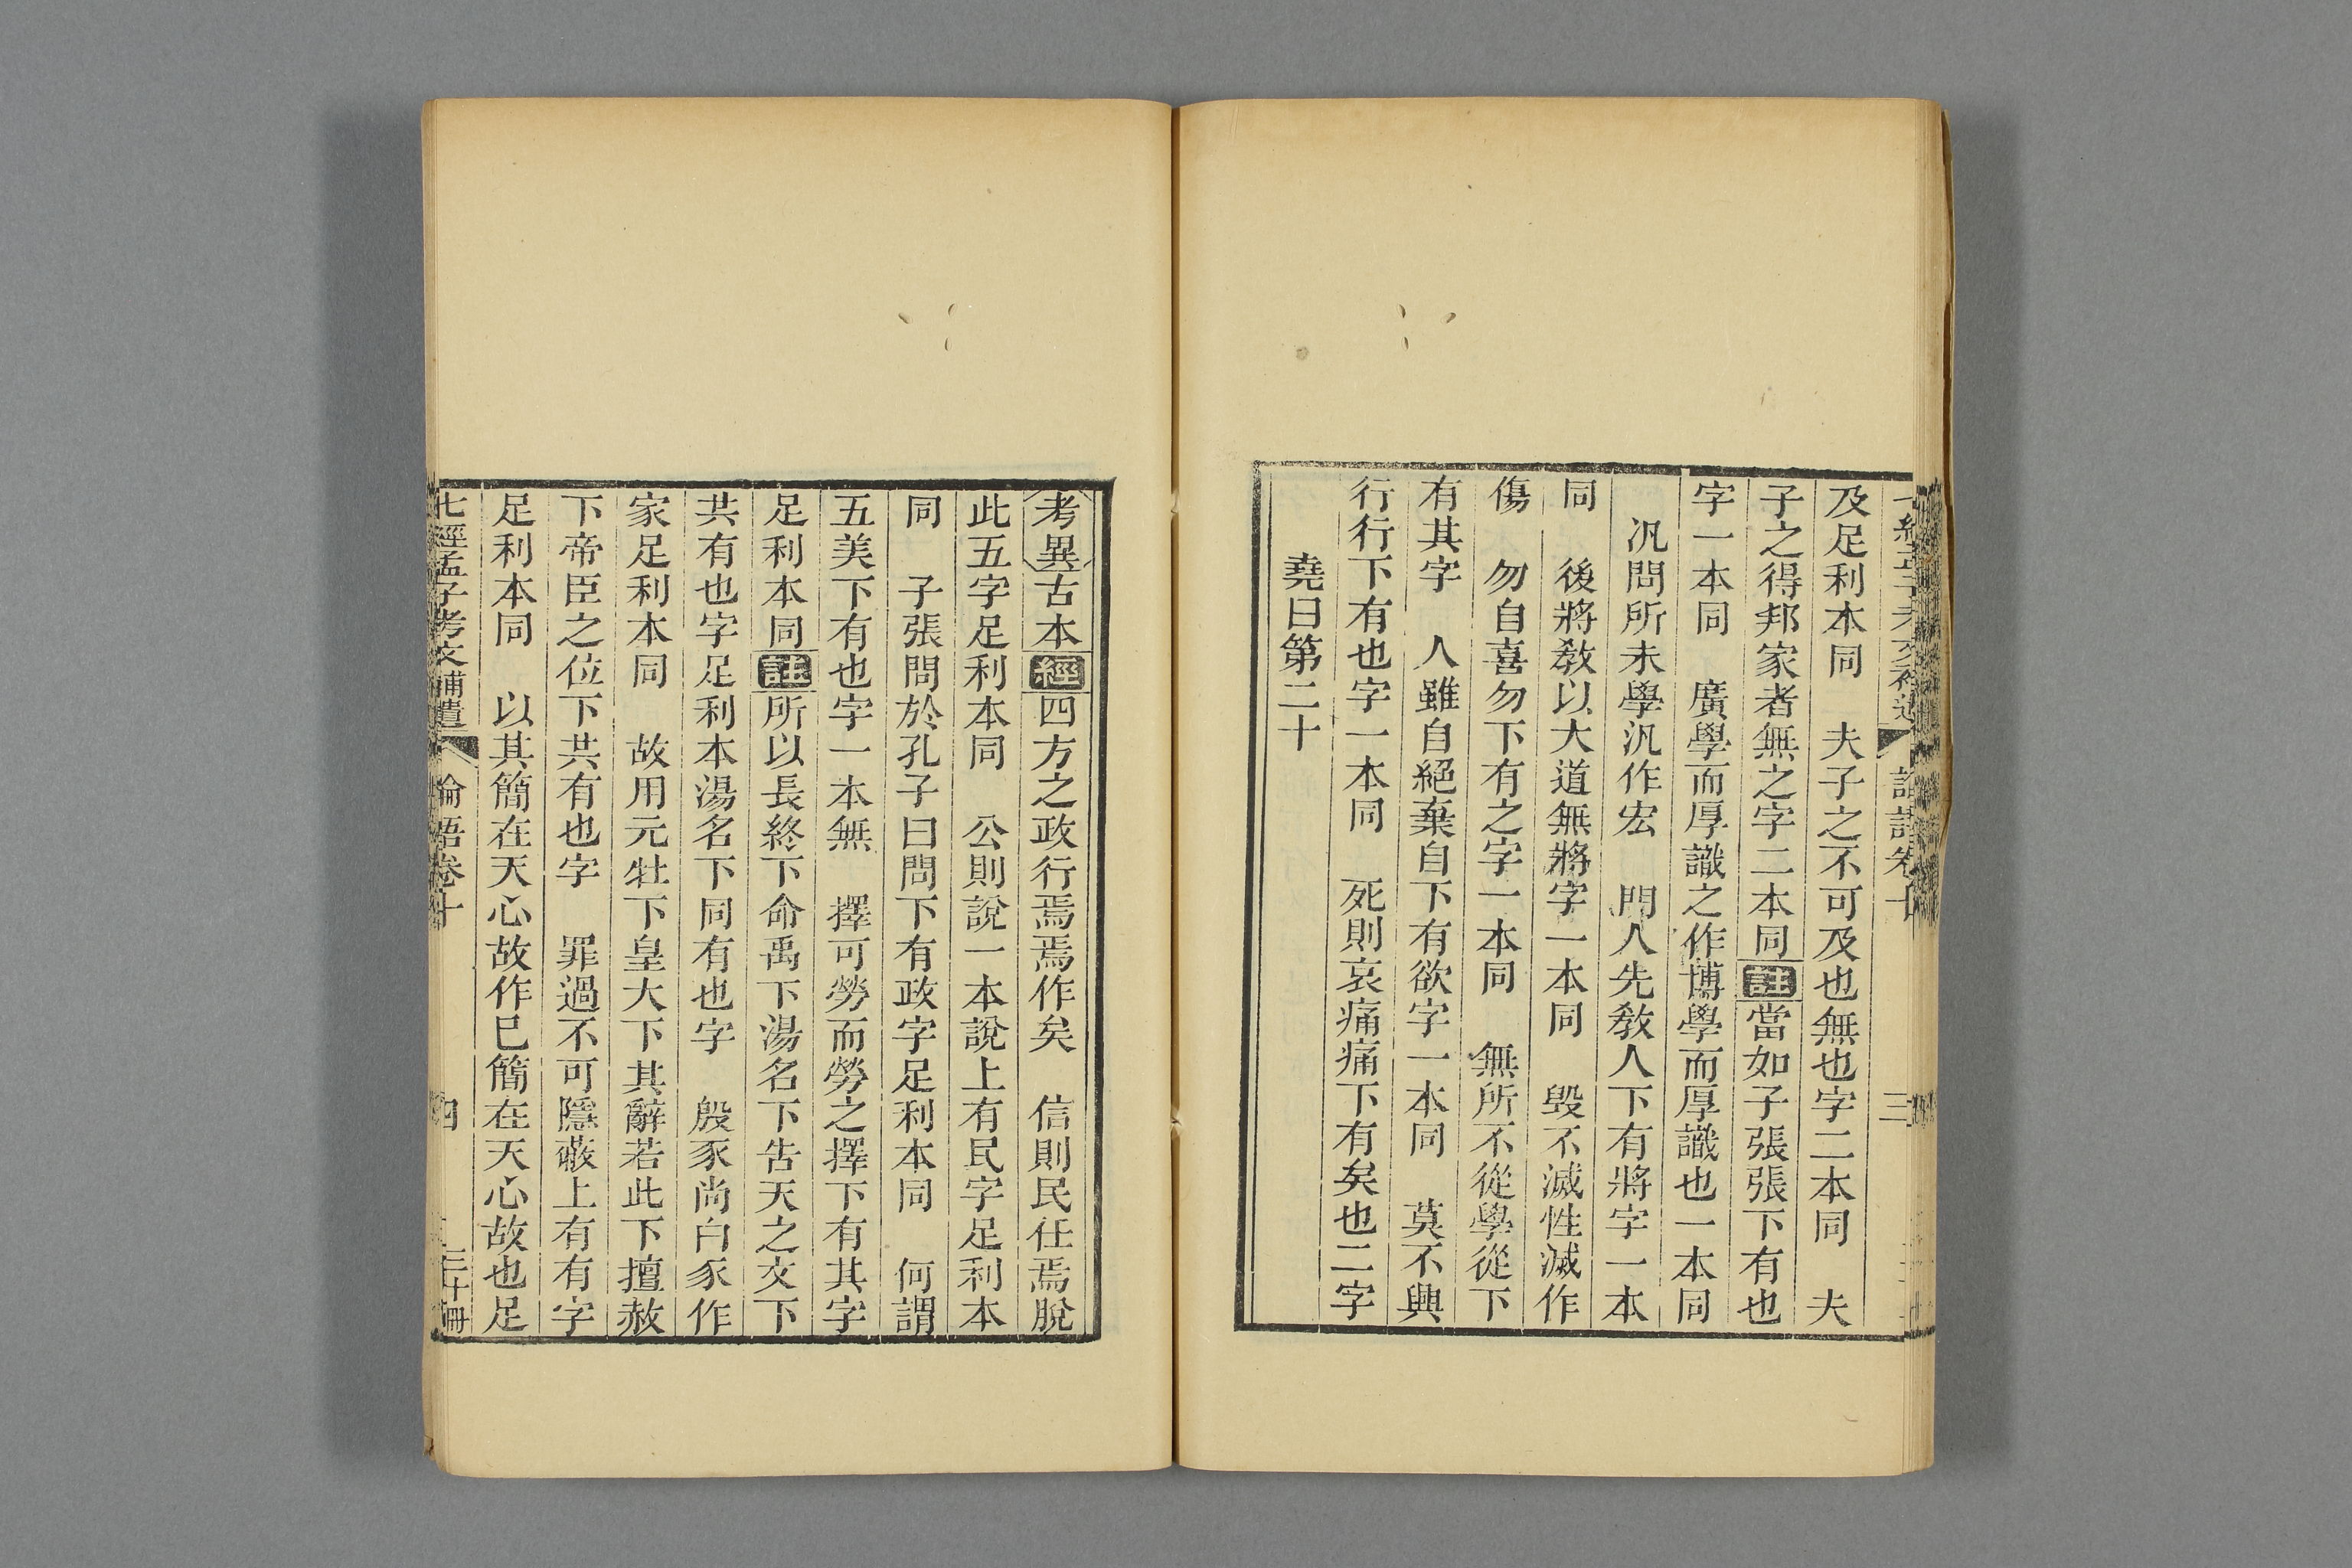 及足利本同　夫子之不可及也無也字二本同　夫
子之得邦家者無之字二本同註當如子張張下有也
字一本同　廣學而厚識之作博學而厚識也一本同
汎問所未學汎作宏　門人先敎人下有將字一本
同　後將敎以大道無將字一本同　毀不滅性滅作
傷　勿自喜勿下有之字一本同　無所不從學從下
有其字　人雖自絕棄自下有欲字一本同　莫不興
行行下有也字一本同　死則哀痛痛下有矣也二字
堯曰第二十
考異古本經四方之政行焉焉作矣　信則民任焉脫
此五字足利本同　公則說一本說上有民字足利本
同　子張問於孔子曰問下有政字足利本同　何謂
五美下有也字一本無　擇可勞而勞之擇下有其字
足利本同註所以長終下命禹下湯名下告天之文下
共有也字足利本湯名下同有也字　殷豕尚白豕作
家足利本同　故用元牡下皇大下其辭若此下擅赦
下帝臣之位下共有也字　罪過不可隱蔽上有有字
足利本同　以其簡在天心故作已簡在天心故也足
七經孟子考文補遺　論語卷十　四　三十冊